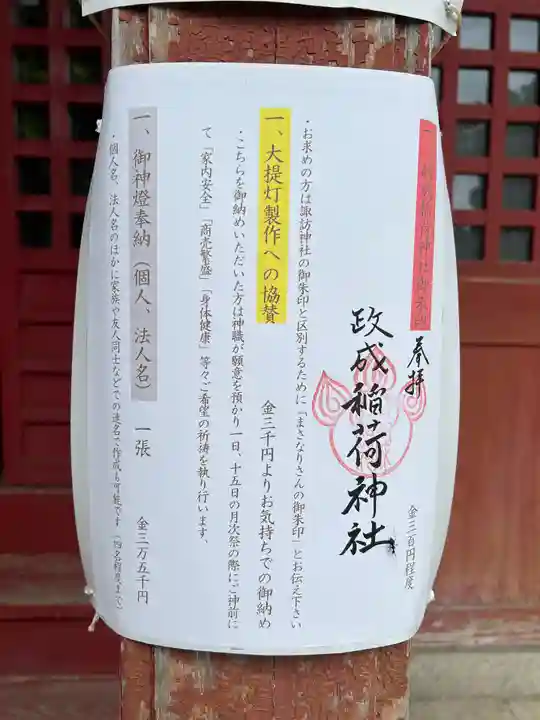 一、政成稲荷神社御朱印
奉拝
金三百円程度
政成稲荷神社
・お求めの方は諏訪神社の御朱印と区別するために「まさなりさんの御朱印」とお伝え下さい
一、大提灯製作への協賛
金三千円よりお気持ちでの御納め
・こちらを御納めいただいた方は神職が願意を預かり一日、十五日の月次祭の際にご神前に
て「家内安全」「商売繁盛」「身体健康」等々ご希望の祈祷を執り行います、
一、御神燈奉納（個人、法人名）一張
金三万五千円
・個人名、法人名のほかに家族や友人同士などでの連名で作成も可能です（四名程度まで）